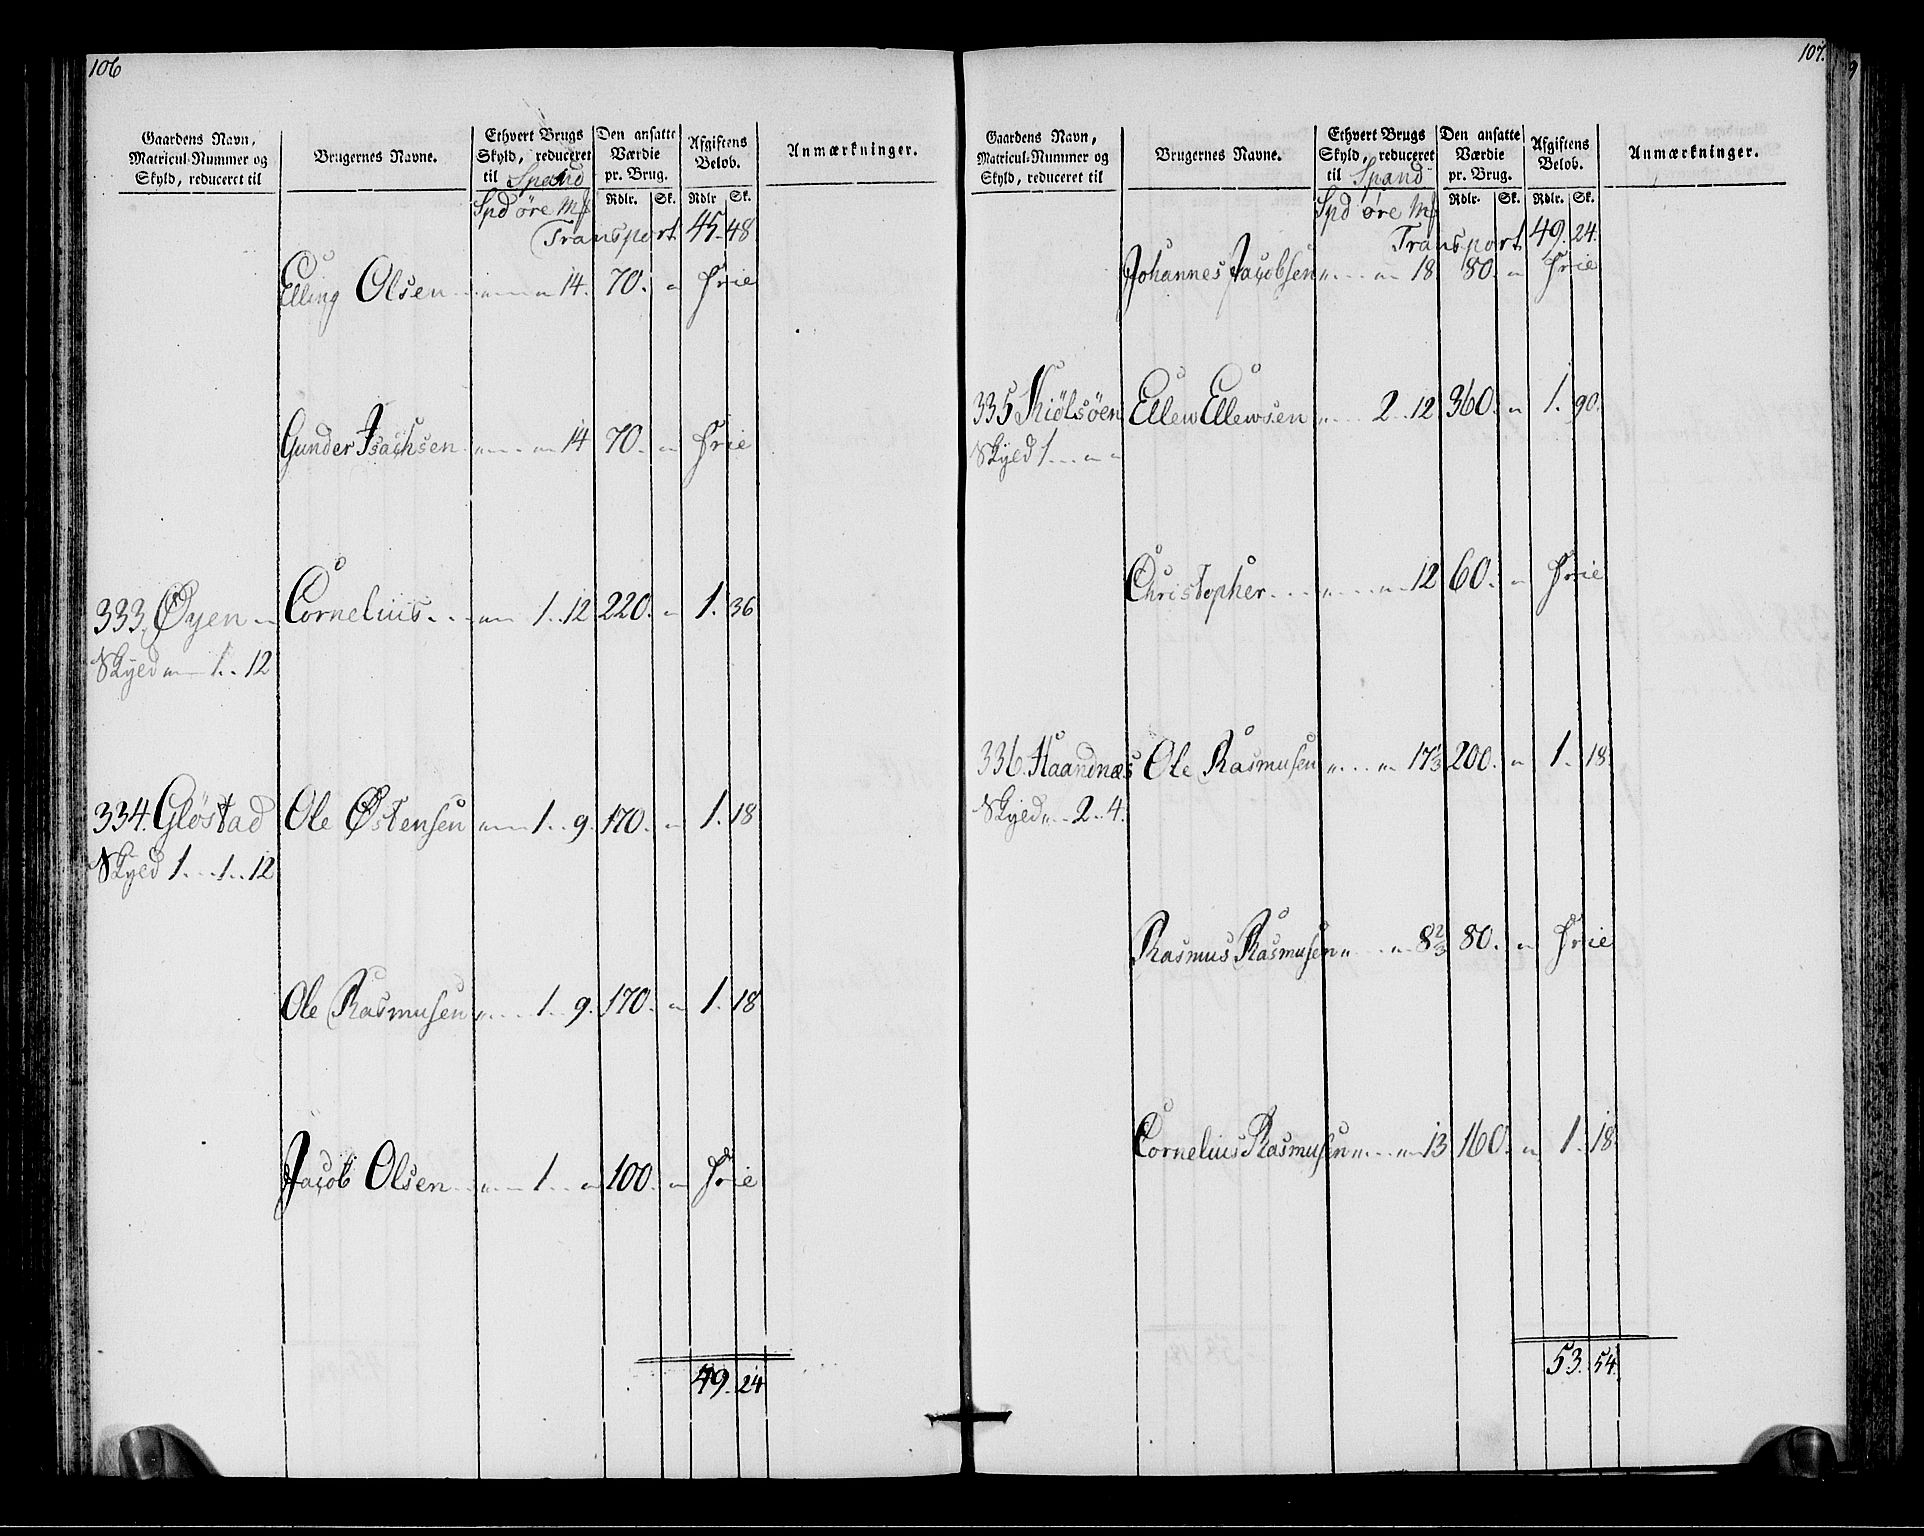 106
Gaardens Navn, Matricul-Nummer og Skyld, reduceret til
Brugernes Navne.
Ethvert Brugs Skyld, reduceret til Spand
Den ansatte Værdie pr. Brug.
Afgiftens Beløb.
Anmærkninger.
Spd øre Mk Rdlr. Sk. Rdlr Sk.
Transport 45. 48
Elling Olsen 14. 70. " Frie
Gunder Isachsen 14 70. " Frie
333. Øyen Cornelius 1. 12 220. " 1. 36
Skyld " 1. 12
334. Gløstad Ole Østensen 1. 9. 170. " 1. 18
Skyld 1 1. 12
Ole Rasmusen 1. 9. 170. " 1. 18
Jacob Olsen 1 " 100. " Frie
49. 24
107.
Gaardens Navn, Matricul-Nummer og Skyld, reduceret til
Brugernes Navne.
Ethvert Brugs Skyld, reduceret til Spand
Den ansatte Værdie pr. Brug.
Afgiftens Beløb.
Anmærkninger.
Spd øre Mk Rdlr. Sk. Rdlr. Sk.
Transport 49. 24.
Johannes Jacobsen " " 18 80. " Frie
335 Kiølsøen Ellew Ellewsen " 2 12 360. " 1. 90.
Skyld 1 " "
Christopher " " 12 60. " Frie
336. Haandnæs Ole Rasmusen " " 17 1/3 200. " 1. 18
Skyld " 2. 4.
Rasmus Rasmusen " " 8 2/3 80. " Frie
Cornelius Rasmusen " " 13 160. " 1. 18
53. 54.